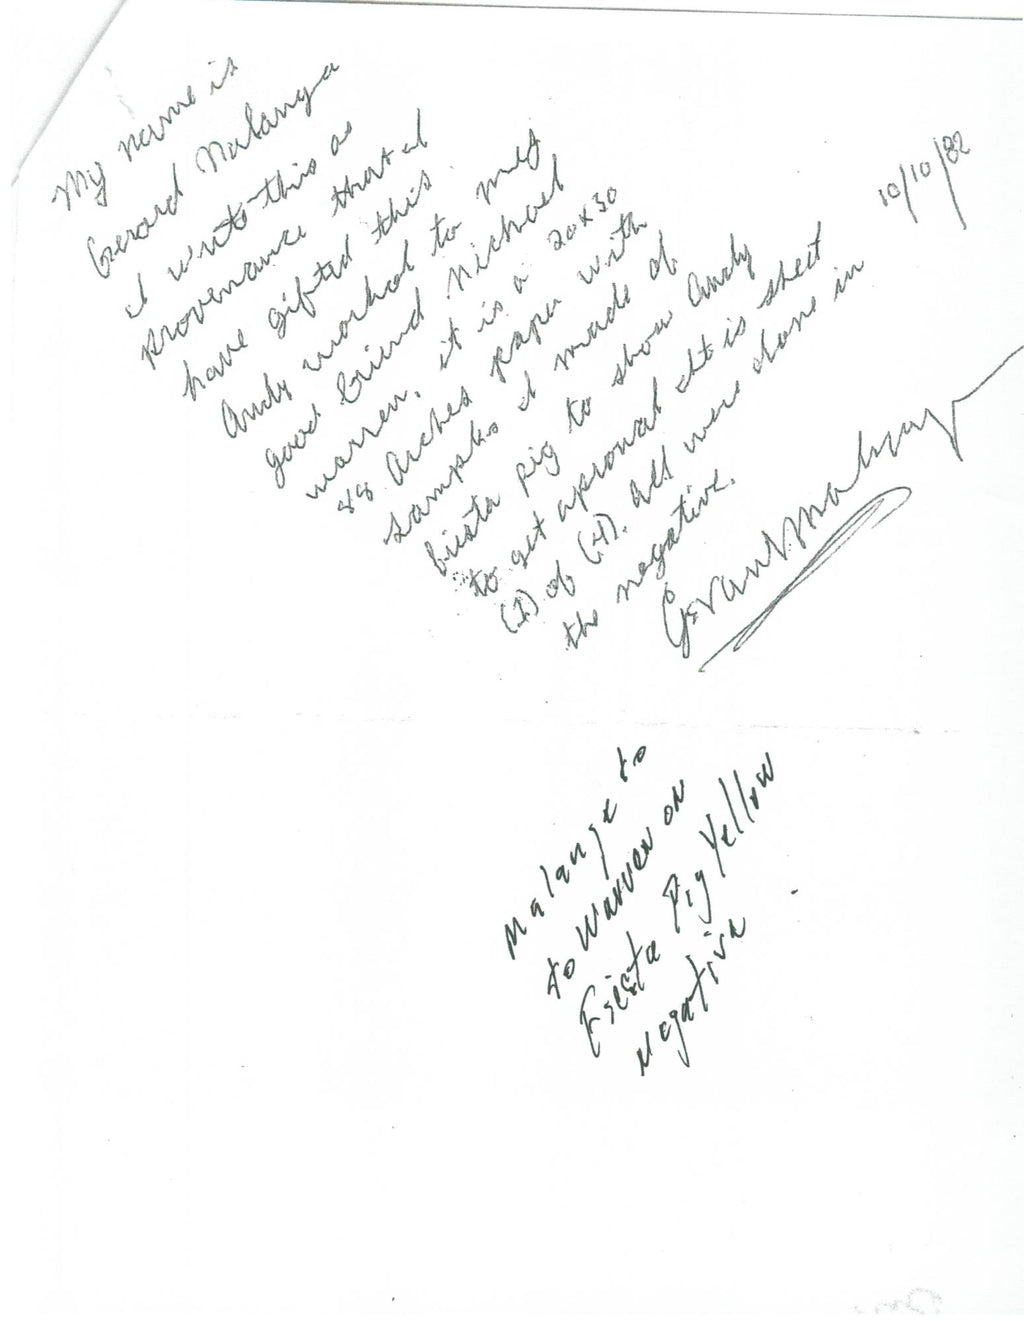 10/10/82
My name is
Gerard Malanga
I write this as
provenance that I
have gifted this
Andy Warhol to my
good friend Michael
Warren. it is a 20x30
88 Arches paper with
samples I made of
fiesta pig to show Andy
to get aproval It is sheet
(1) of (4). all were done in
the nagative.
Gerard Malanga
Malange to
to Warren on
Fiesta Pig Yellow
Negative